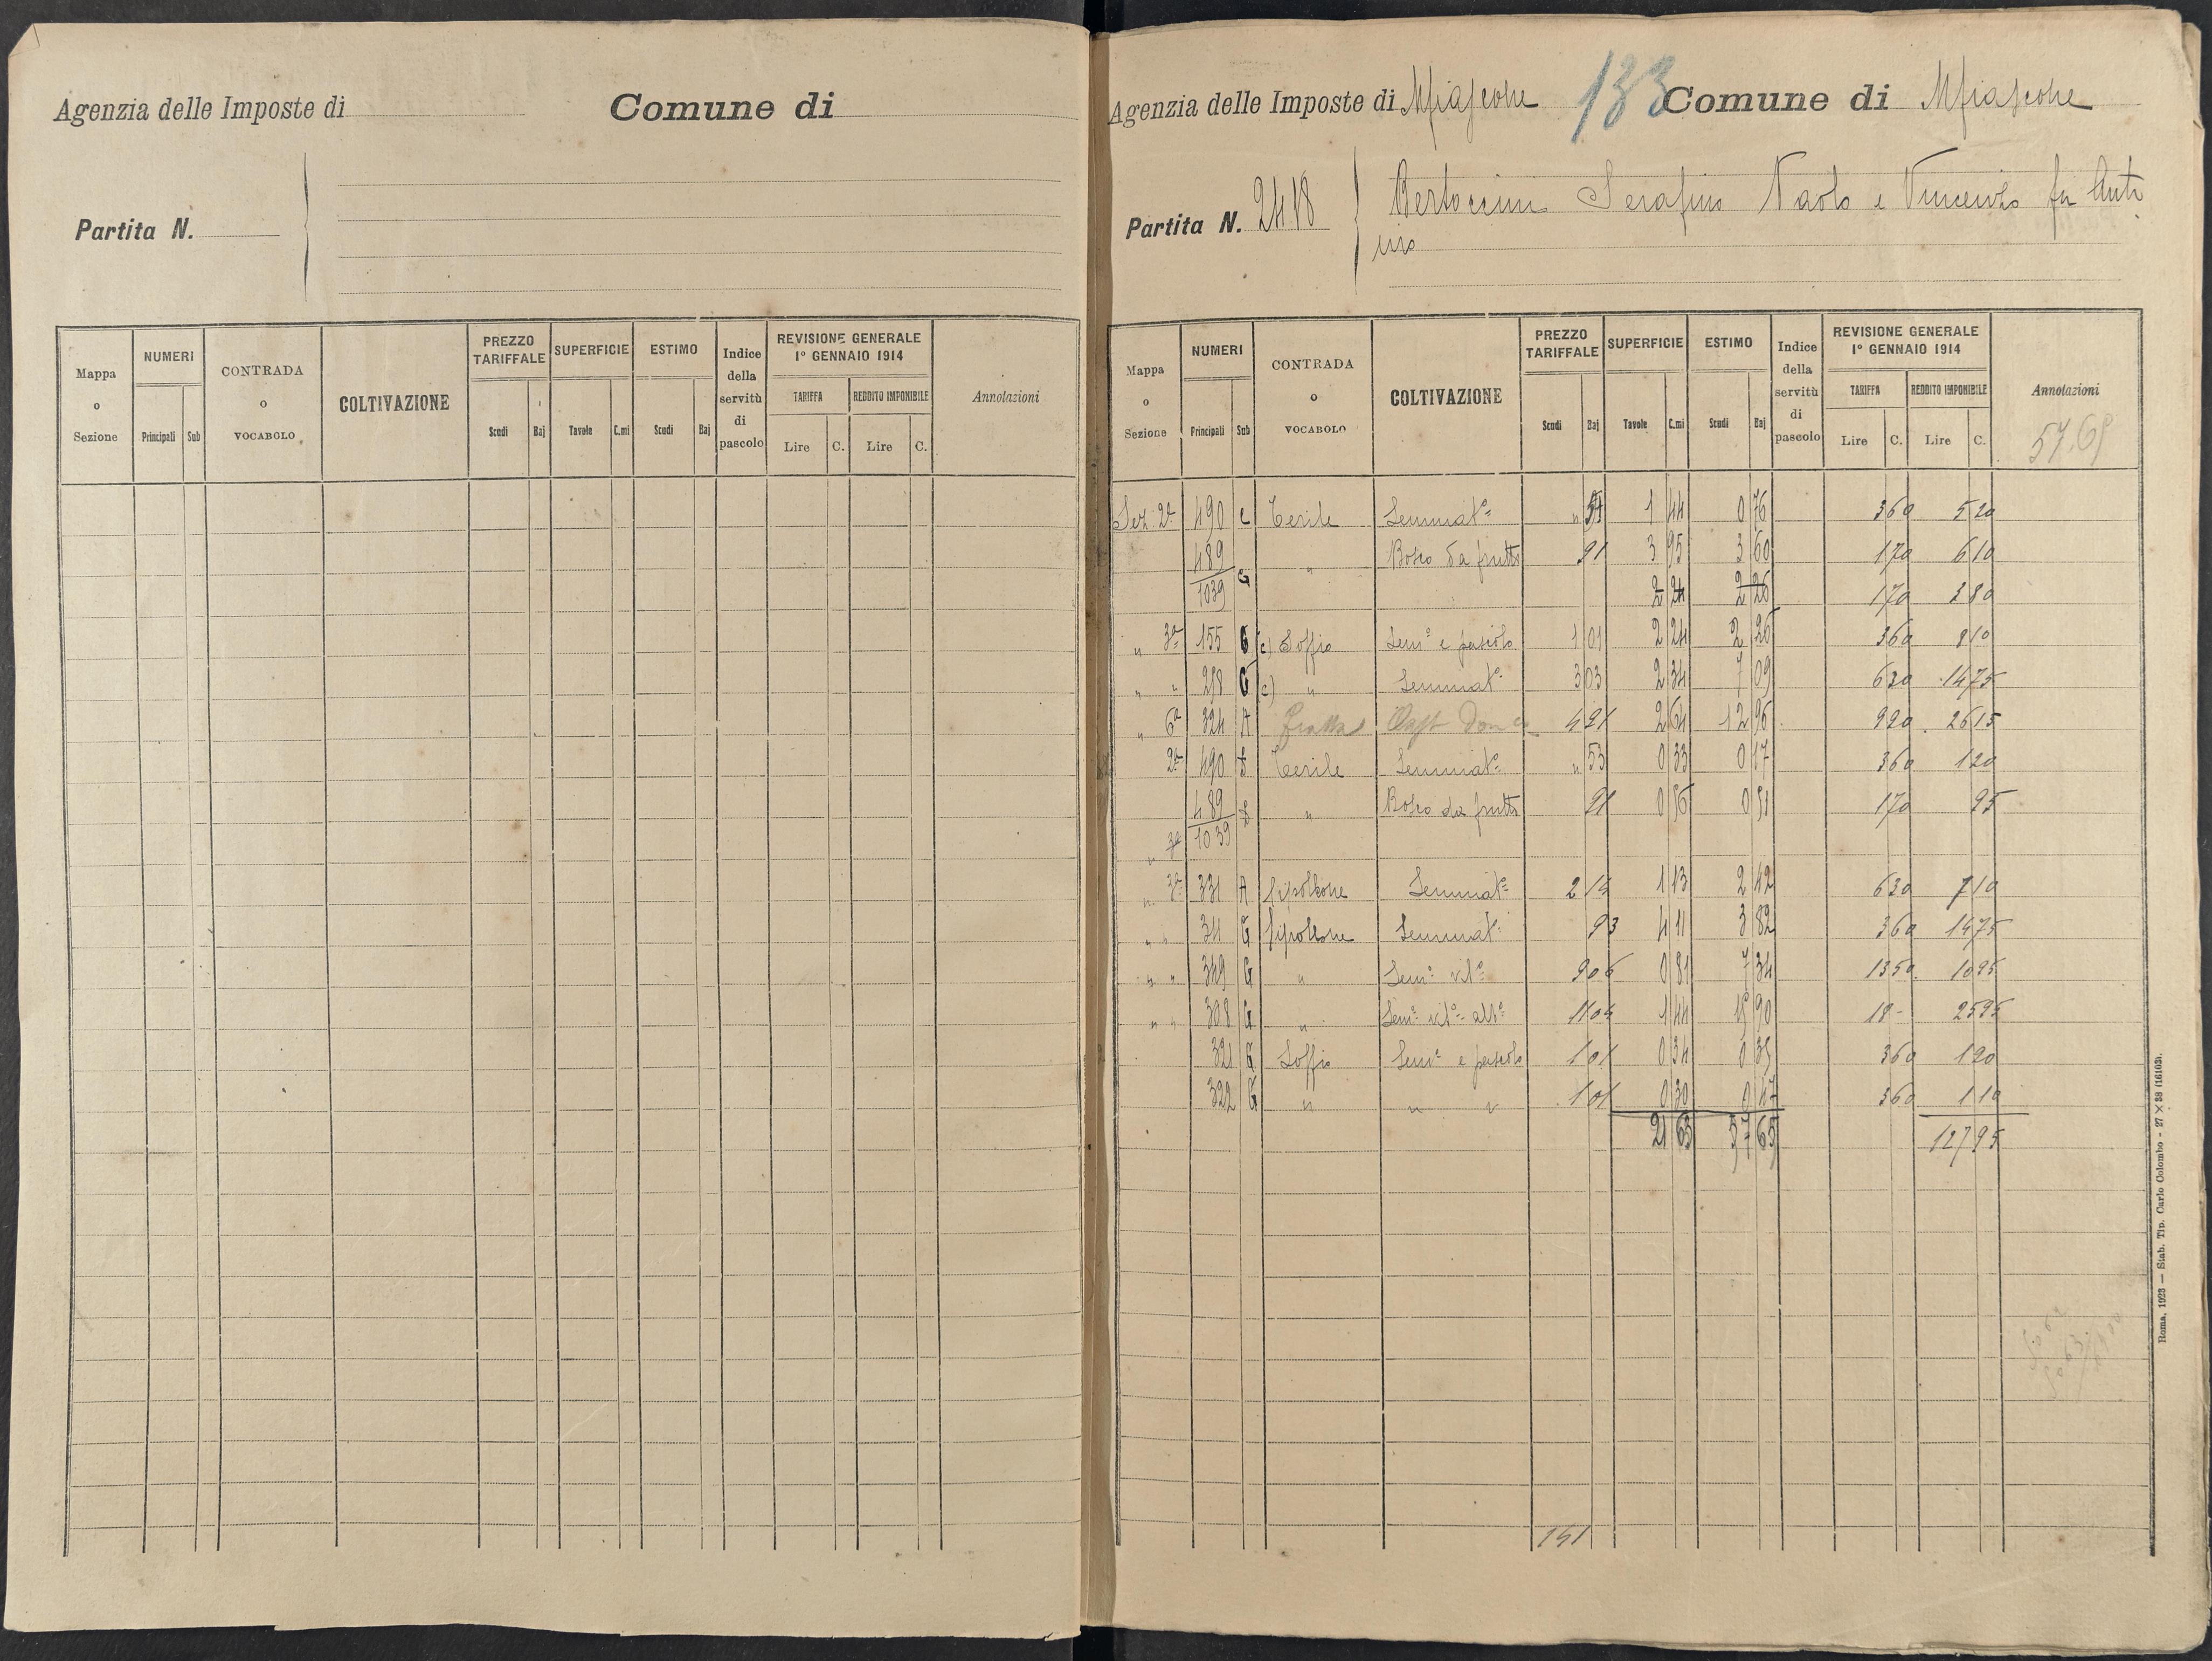 Agenzia delle Imposte di
Comune di
Partita N.
Mappa o Sezione
NUMERI
Principali
Sub
CONTRADA o VOCABOLO
COLTIVAZIONE
PREZZO TARIFFALE
Scudi
Baj
SUPERFICIE
Tavole
C.mi
ESTIMO
Scudi
Baj
Indice della servitù di pascolo
REVISIONE GENERALE
1° GENNAIO 1914
TARIFFA
REDDITO IMPONIBILE
Lire
C.
Lire
C.
Annotazioni
Agenzia delle Imposte di
133
Comune di
Partita N. 2418
Bertoccini Serafino Paolo e Vincenzo fu Anto
nio
Mappa o Sezione
NUMERI
Principali
Sub
CONTRADA o VOCABOLO
COLTIVAZIONE
PREZZO TARIFFALE
Scudi
Baj
SUPERFICIE
Tavole
C.mi
ESTIMO
Scudi
Baj
Indice della servitù di pascolo
REVISIONE GENERALE
1° GENNAIO 1914
TARIFFA
REDDITO IMPONIBILE
Lire
C.
Lire
C.
Annotazioni
57.65
Sez 2ª 490 c Cerile Seminatº " 1 44 0 76 360 520
489 " Bosco da frutto 91 3 95 3 60 170 610
1039 G 2 24 2 26 170 380
" 3ª 155 G (c) Soffio Semº e pascolo 1 01 2 24 2 26 360 810
" " G (c) " Seminatº 3 03 2 34 7 09 630 1475
" 6ª 324 A 491 2 64 12 96 990 2615
2ª 490 Cerile Seminatº " 53 0 33 0 17 360 120
489 " Bosco da frutto 91 0 56 0 51 170 95
" 1039
" 3ª 331 A Seminatº 214 1 13 2 42 630 710
" " G Seminatº 93 4 11 3 82 360 1475
" " 349 G " Semº vitº 906 0 81 7 34 1350 1095
" " 308 G " Semº vitº albº 1104 1 44 15 90 18- 2595
321 G Soffio Semº e pascolo 101 0 34 0 35 360 120
322 G " " " 101 0 30 0 47 360 110
21 63 57 65 12795
141
Roma, 1923 — Stab. Tip. Carlo Colombo - 27 × 38 (16103).